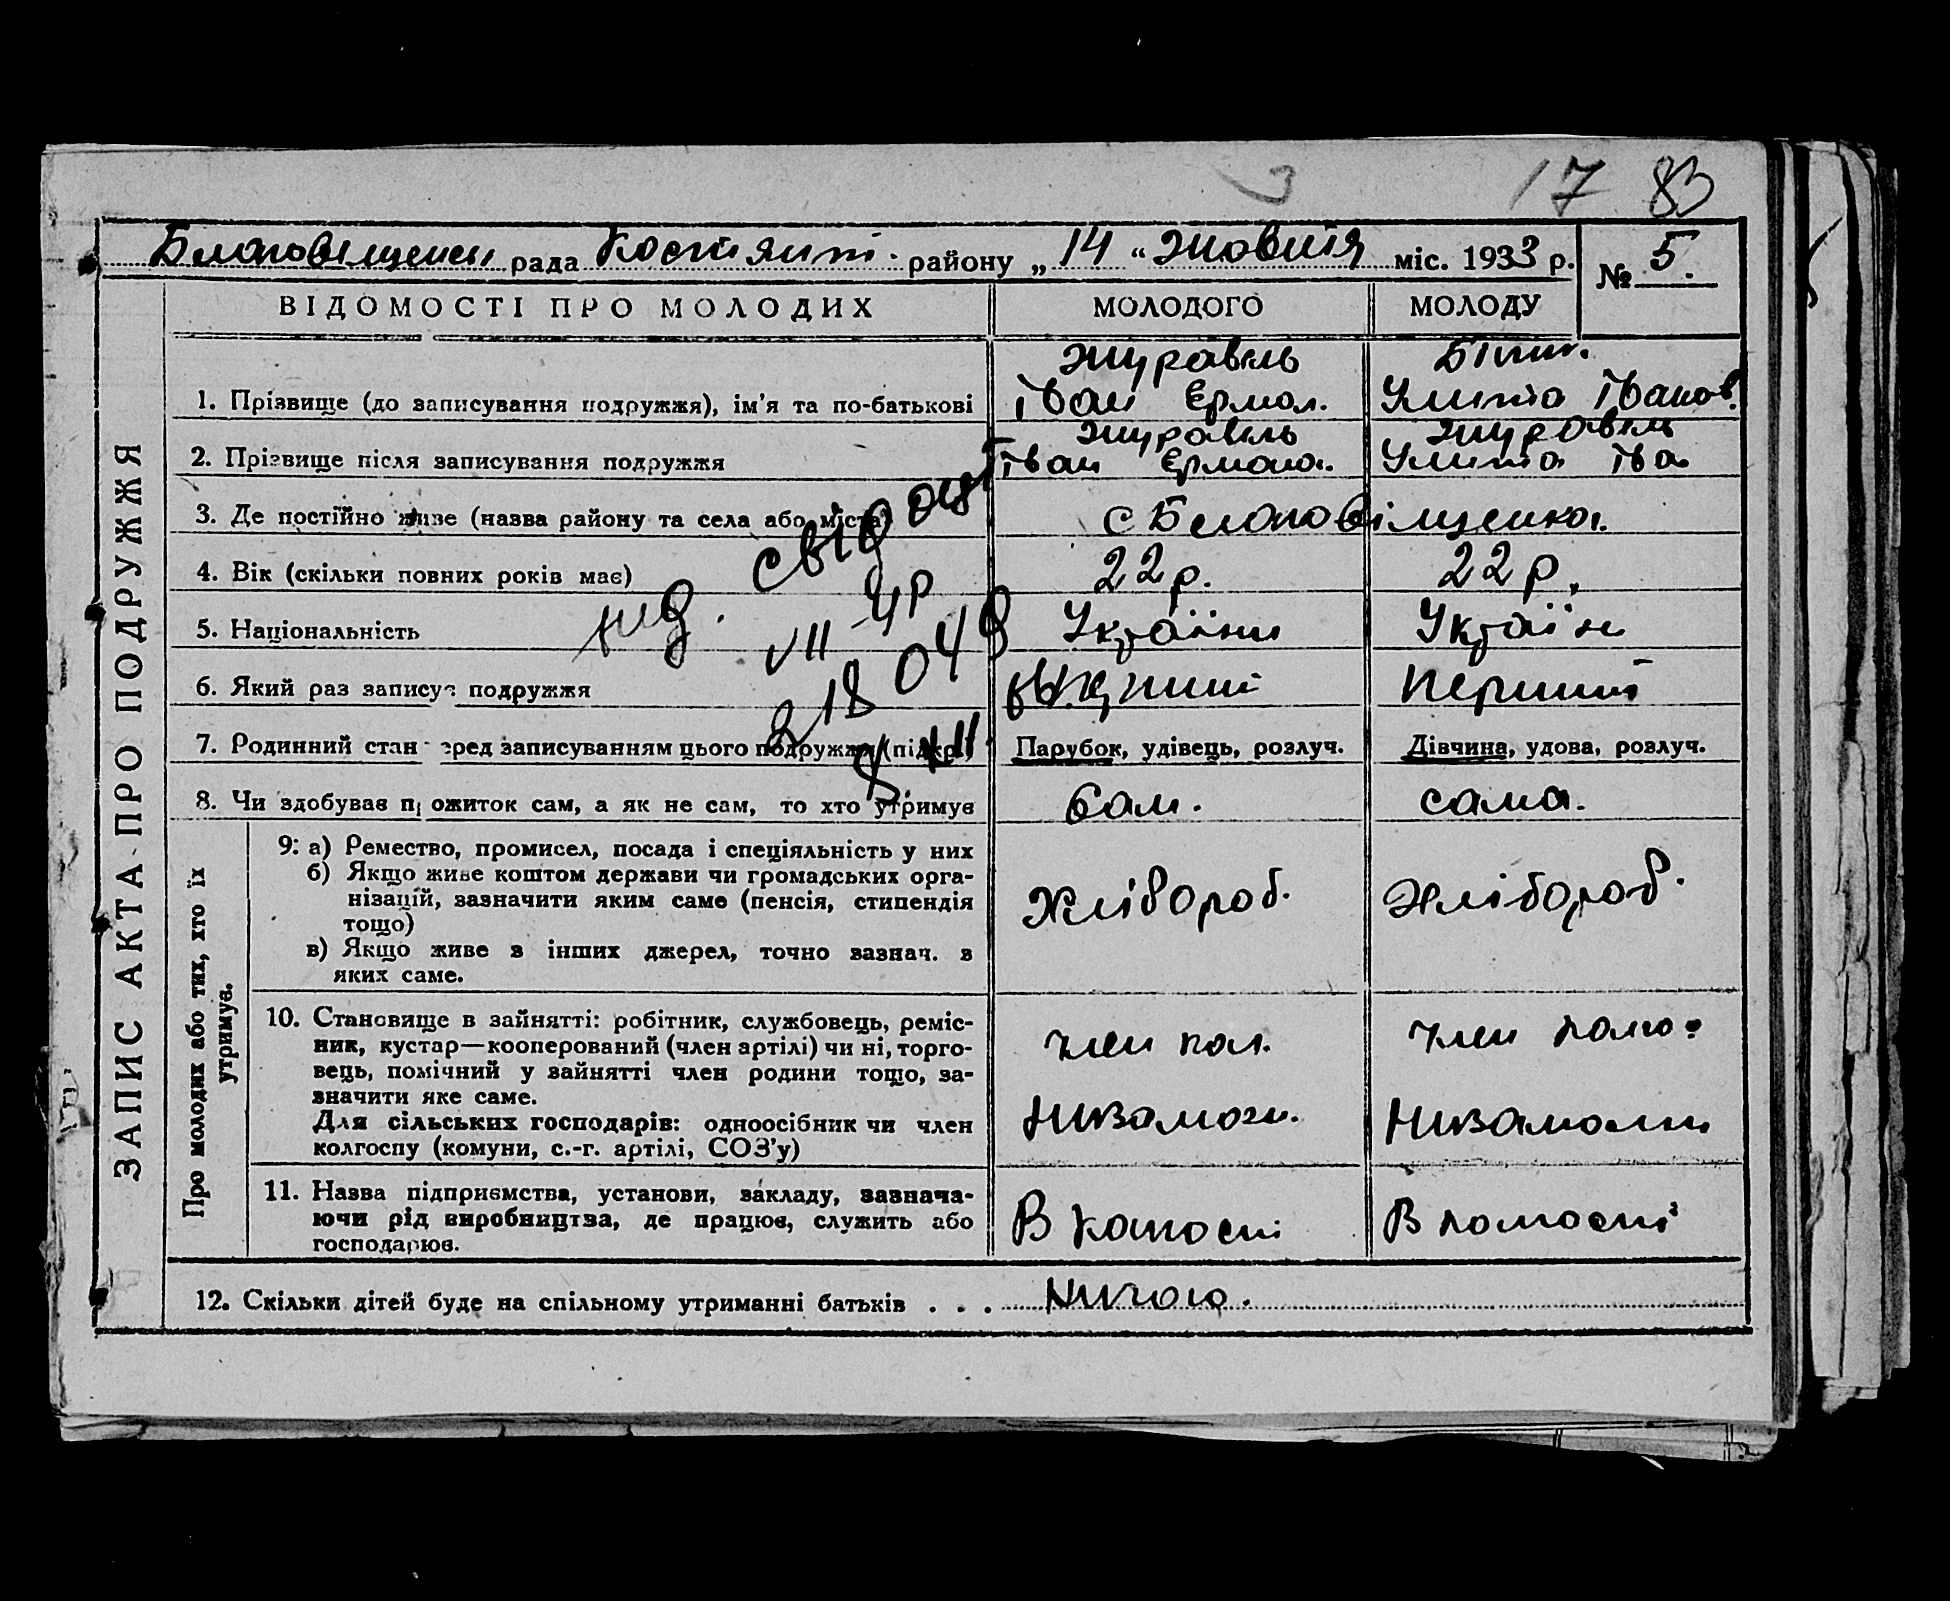 3 17 83
Благовіщенськ рада Костянт. району „ 14 “ жовтня міс. 1933 р. № 5.
ВІДОМОСТІ ПРО МОЛОДИХ МОЛОДОГО МОЛОДУ
ЗАПИС АКТА ПРО ПОДРУЖЖЯ
Журавль
1. Прізвище (до записування подружжя), ім’я та по-батькові Іван Ермол. Улита Іванов.
Журавль Журавль
2. Прізвище після записування подружжя Іван Ермола. Улита Іва
3. Де постійно живе (назва району та села або міста) с Благовіщенка.
4. Вік (скільки повних років має) 22 р. 22 р.
5. Національність Україїни Україїн
6. Який раз записує подружжя Перший
7. Родинний стан перед записуванням цього подружжя (підкр.) Парубок, удівець, розлуч. Дівчина, удова, розлуч.
8. Чи здобував прожиток сам, а як не сам, то хто утримує Сам. сама.
свідоцт
VII УР
218048
Про молодих або тих, хто їх утримує.
9: а) Ремество, промисел, посада і спеціяльність у них
б) Якщо живе коштом держави чи громадських орга-
нізацій, зазначити яким саме (пенсія, стипендія
тощо)
Хлібороб. Хлібороб.
в) Якщо живе з інших джерел, точно зазнач. з
яких саме.
10. Становище в зайнятті: робітник, службовець, реміс-
ник, кустар—кооперований (член артілі) чи ні, торго-
вець, помічний у зайнятті член родини тощо, за-
значити яке саме.
Для сільських господарів: одноосібник чи член
колгоспу (комуни, с.-г. артілі, СОЗ’у)
член кол. член
Незамож.
11. Назва підприємства, установи, закладу, зазнача-
ючи рід виробництва, де працює, служить або
господарює.
В колгоспі В колгоспі
12. Скільки дітей буде на спільному утриманні батьків . . . Ничого.